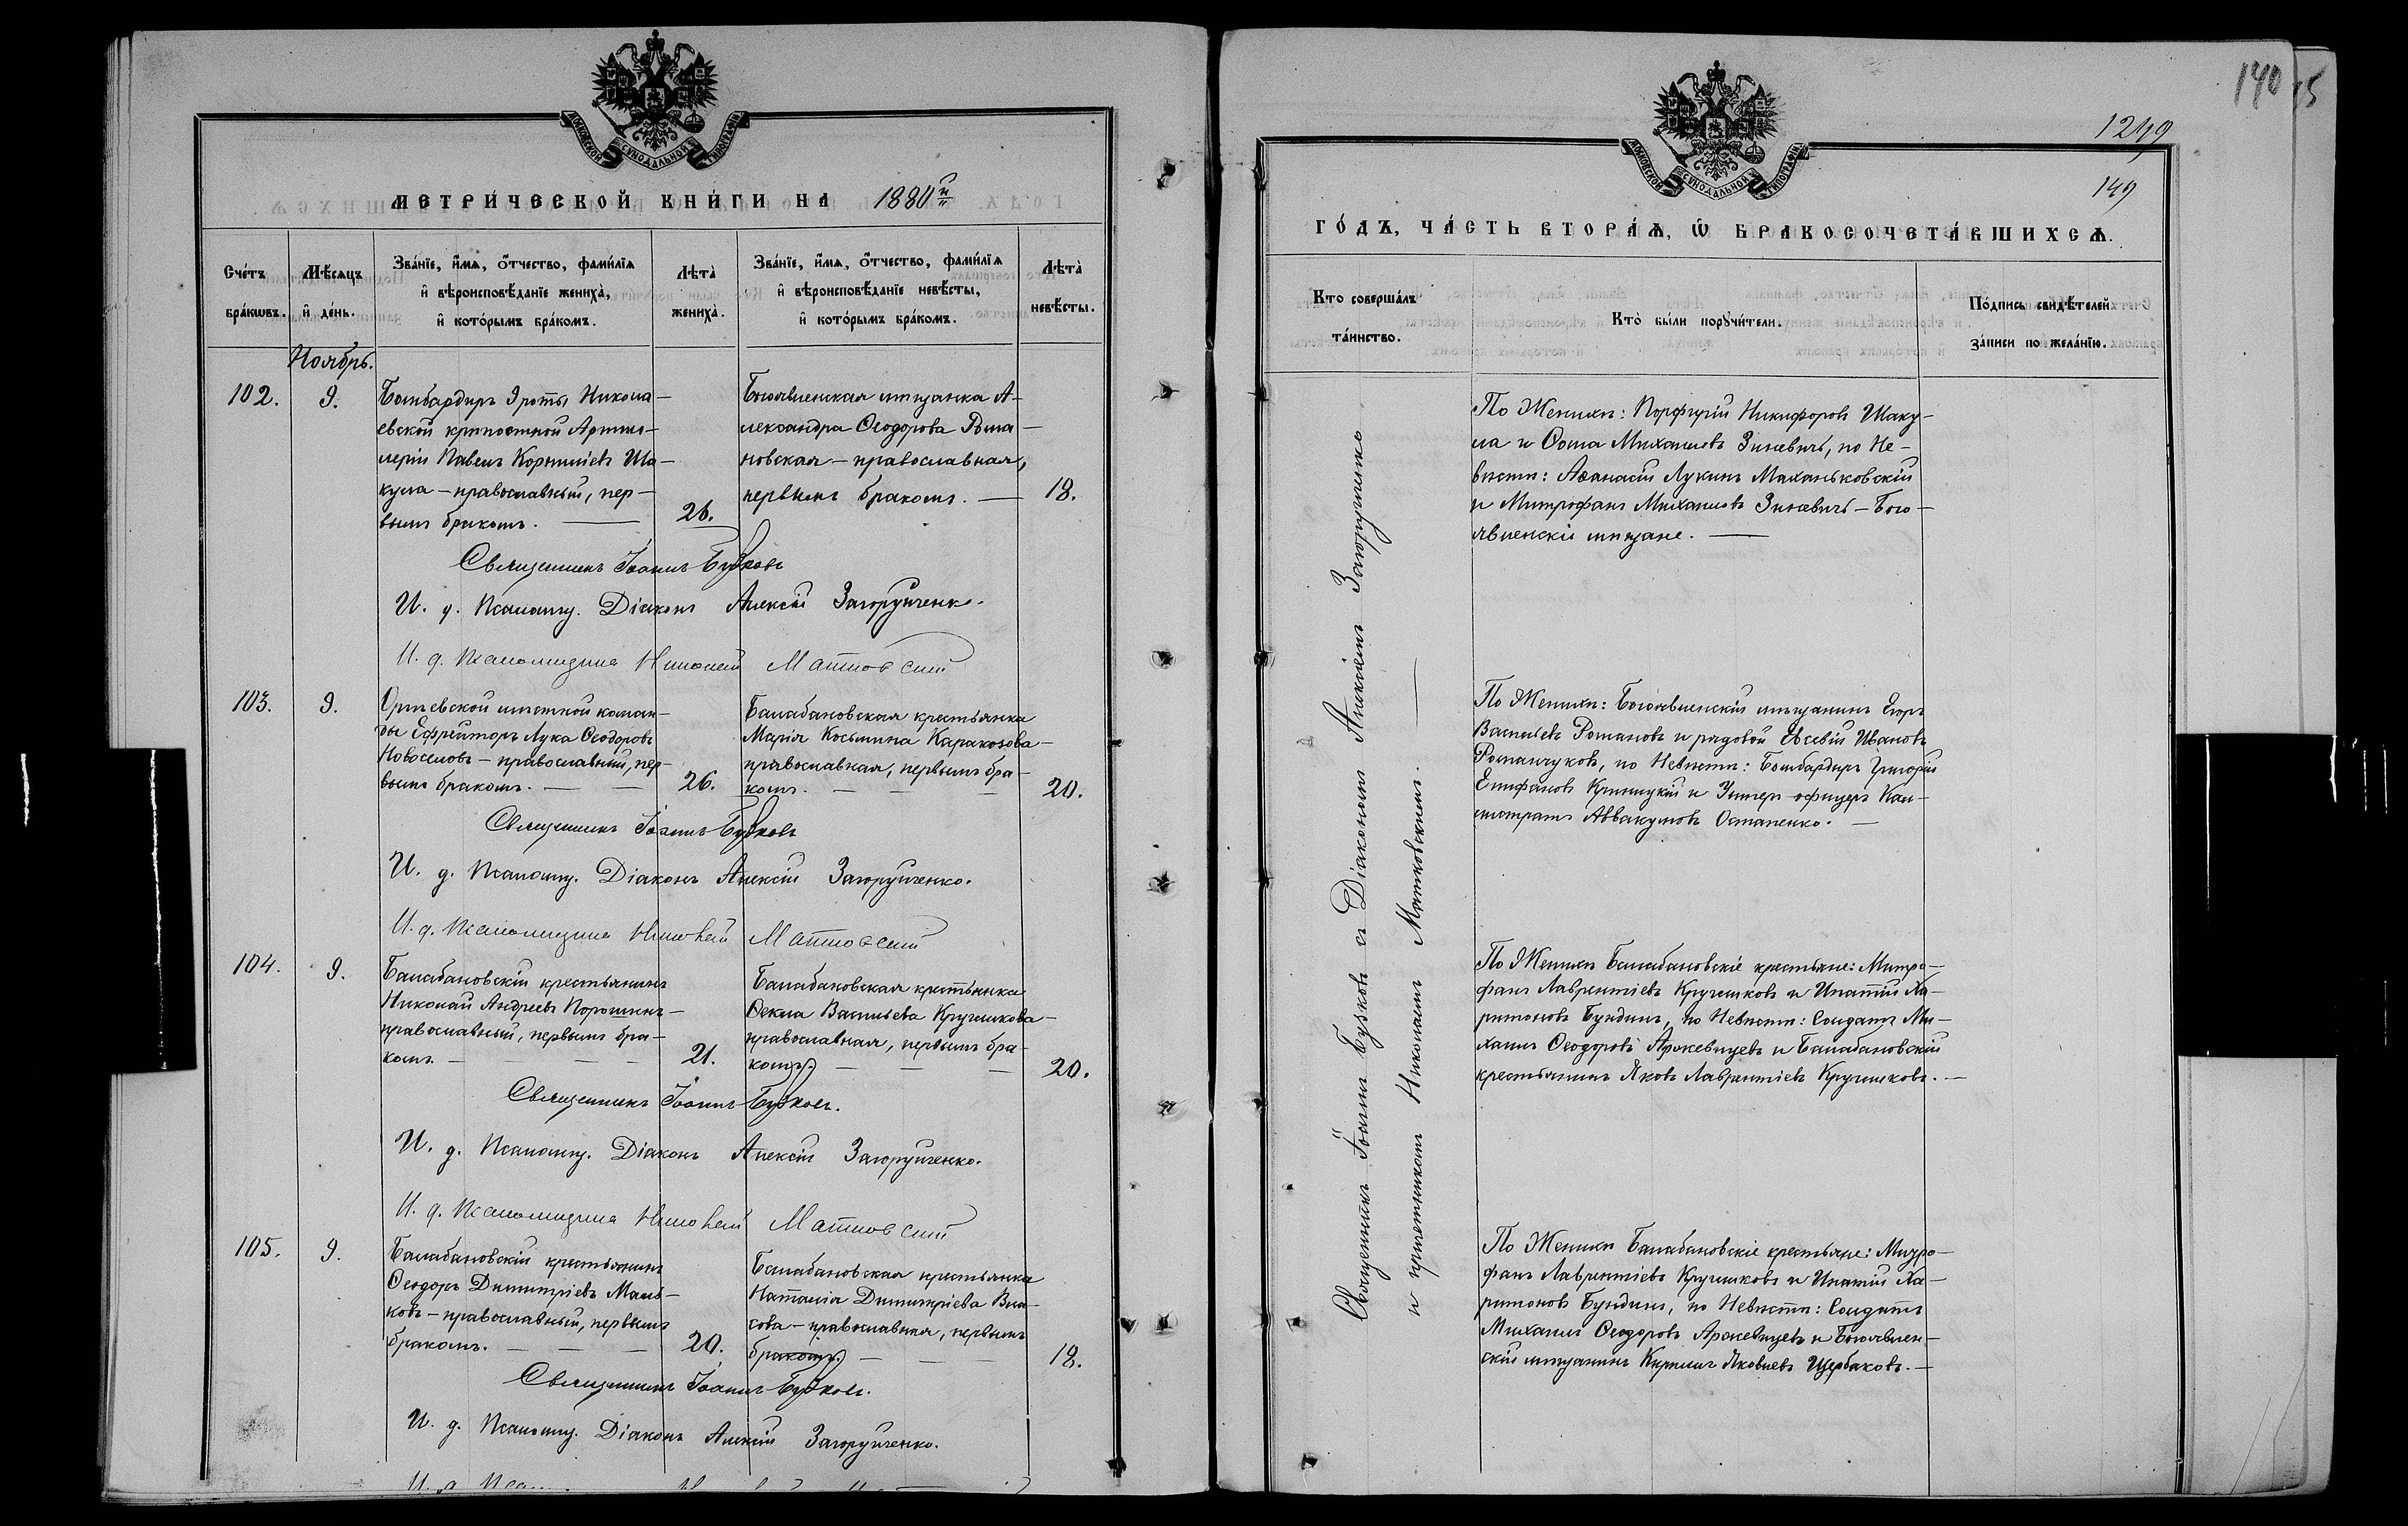 МОСКОВСКОЙ СУНОДАЛЬНОЙ ТИПОГРАФІИ
МЕТРИ́ЧЕСКОЙ КНИ́ГИ НА 1880й
Сче́тъ бра́кѡвъ.
Мѣ́сяцъ и҆ де́нь.
Зва́нїе, и҆́мѧ, ѻ҆́тчество, фами́лїѧ и҆ вѣроисповѣ́данїе жениха̀, и҆ кото́рымъ бра́комъ.
Лѣта̀ жениха̀.
Зва́нїе, и҆́мѧ, ѻ҆́тчество, фами́лїѧ и҆ вѣроисповѣ́данїе невѣ́сты, и҆ кото́рымъ бра́комъ.
Лѣта̀ невѣ́сты.
Ноябрь.
102.
9.
Бомбардиръ 9 роты Никола-
евской крѣпостной Артил-
леріи Павелъ Корниліевъ Ша-
кула - православный, пер-
вымъ бракомъ.
26.
Богоявленская мѣщанка А-
лександра Ѳеодорова Рома-
новская - православная,
первымъ бракомъ.
18.
Священникъ Іоаннъ Бубковъ
И. д. Псаломщ. Діаконъ Алексій Загоруйченко.
И. д. Псаломщика Николай Матковскій
103.
9.
мѣстной коман-
ды Ефрейторъ Лука Ѳеодоровъ
Новоселовъ - православный, пер-
вымъ бракомъ.
26.
Балабановская крестьянка
Марія Косьмина Каракозова -
православная, первымъ бра-
комъ.
20.
Священникъ Іоаннъ Бубковъ
И. д. Псаломщ. Діаконъ Алексій Загоруйченко.
И. д. Псаломщика Николай Матковскій
104.
9.
Балабановскій крестьянинъ
Николай Андреевъ Порошинъ -
православный, первымъ бра-
комъ.
21.
Балабановская крестьянка
Ѳекла Васильева Кручинкова -
православная, первымъ бра-
комъ.
20.
Священникъ Іоаннъ Бубковъ.
И. д. Псаломщ. Діаконъ Алексій Загоруйченко.
И. д. Псаломщика Николай Матковскій
105.
9.
Балабановскій крестьянинъ
Ѳеодоръ Димитріевъ Маль-
ковъ - православный, первымъ
бракомъ.
20.
Балабановская крестьянка
Наталія Димитріева Вла-
сова - православная, первымъ
бракомъ.
18.
Священникъ Іоаннъ Бубковъ.
И. д. Псаломщ. Діаконъ Алексій Загоруйченко.
140
1249
149
МОСКОВСКОЙ СУНОДАЛЬНОЙ ТИПОГРАФІИ
ГО́ДЪ, ЧА́СТЬ ВТОРА́Ѧ, Ѽ БРАКОСОЧЕТА́ВШИХСѦ.
Кто̀ соверша́лъ та́инство.
Кто̀ бы́ли поручи́тели.
По́дпись свидѣ́телей за́писи по жела́нїю.
Священникъ Іоаннъ Бубковъ съ Діакономъ Алексіемъ Загоруйченко
и причетникомъ Николаемъ Матковскимъ.
По Женихѣ: Порфирій Никифоровъ Шаку-
ла и Ѳома Михаиловъ Зиневичъ, по Не-
вѣстѣ: Аѳанасій Лукинъ Маханьковскій
и Митрофанъ Михаиловъ Зиневичъ - Бого-
явленскіи мѣщане.
По Женихѣ: Богоявленскіи мѣщанинъ Егоръ
Васильевъ Романовъ и рядовой Евсевій Ивановъ
Романчуковъ, по Невѣстѣ: Бомбардиръ Григорій
Епифановъ Криницкій и Унтеръ-офицеръ Кал-
листратъ Аввакумовъ Остапенко.
По Женихѣ Балабановскіе крестьяне: Митро-
фанъ Лаврентіевъ Кручинковъ и Ипатій Ха-
ритоновъ Бундинъ, по Невѣстѣ: Солдатъ Ми-
хаилъ Ѳеодоровъ Аржевицевъ и Балабановскій
крестьянинъ Яковъ Лаврентіевъ Кручинковъ.
По Женихѣ Балабановскіе крестьяне: Митро-
фанъ Лаврентіевъ Кручинковъ и Ипатій Ха-
ритоновъ Бундинъ, по Невѣстѣ: Солдатъ
Михаилъ Ѳеодоровъ Аржевицевъ и Богоявлен-
скій мѣщанинъ Кириллъ Яковлевъ Щербаковъ.